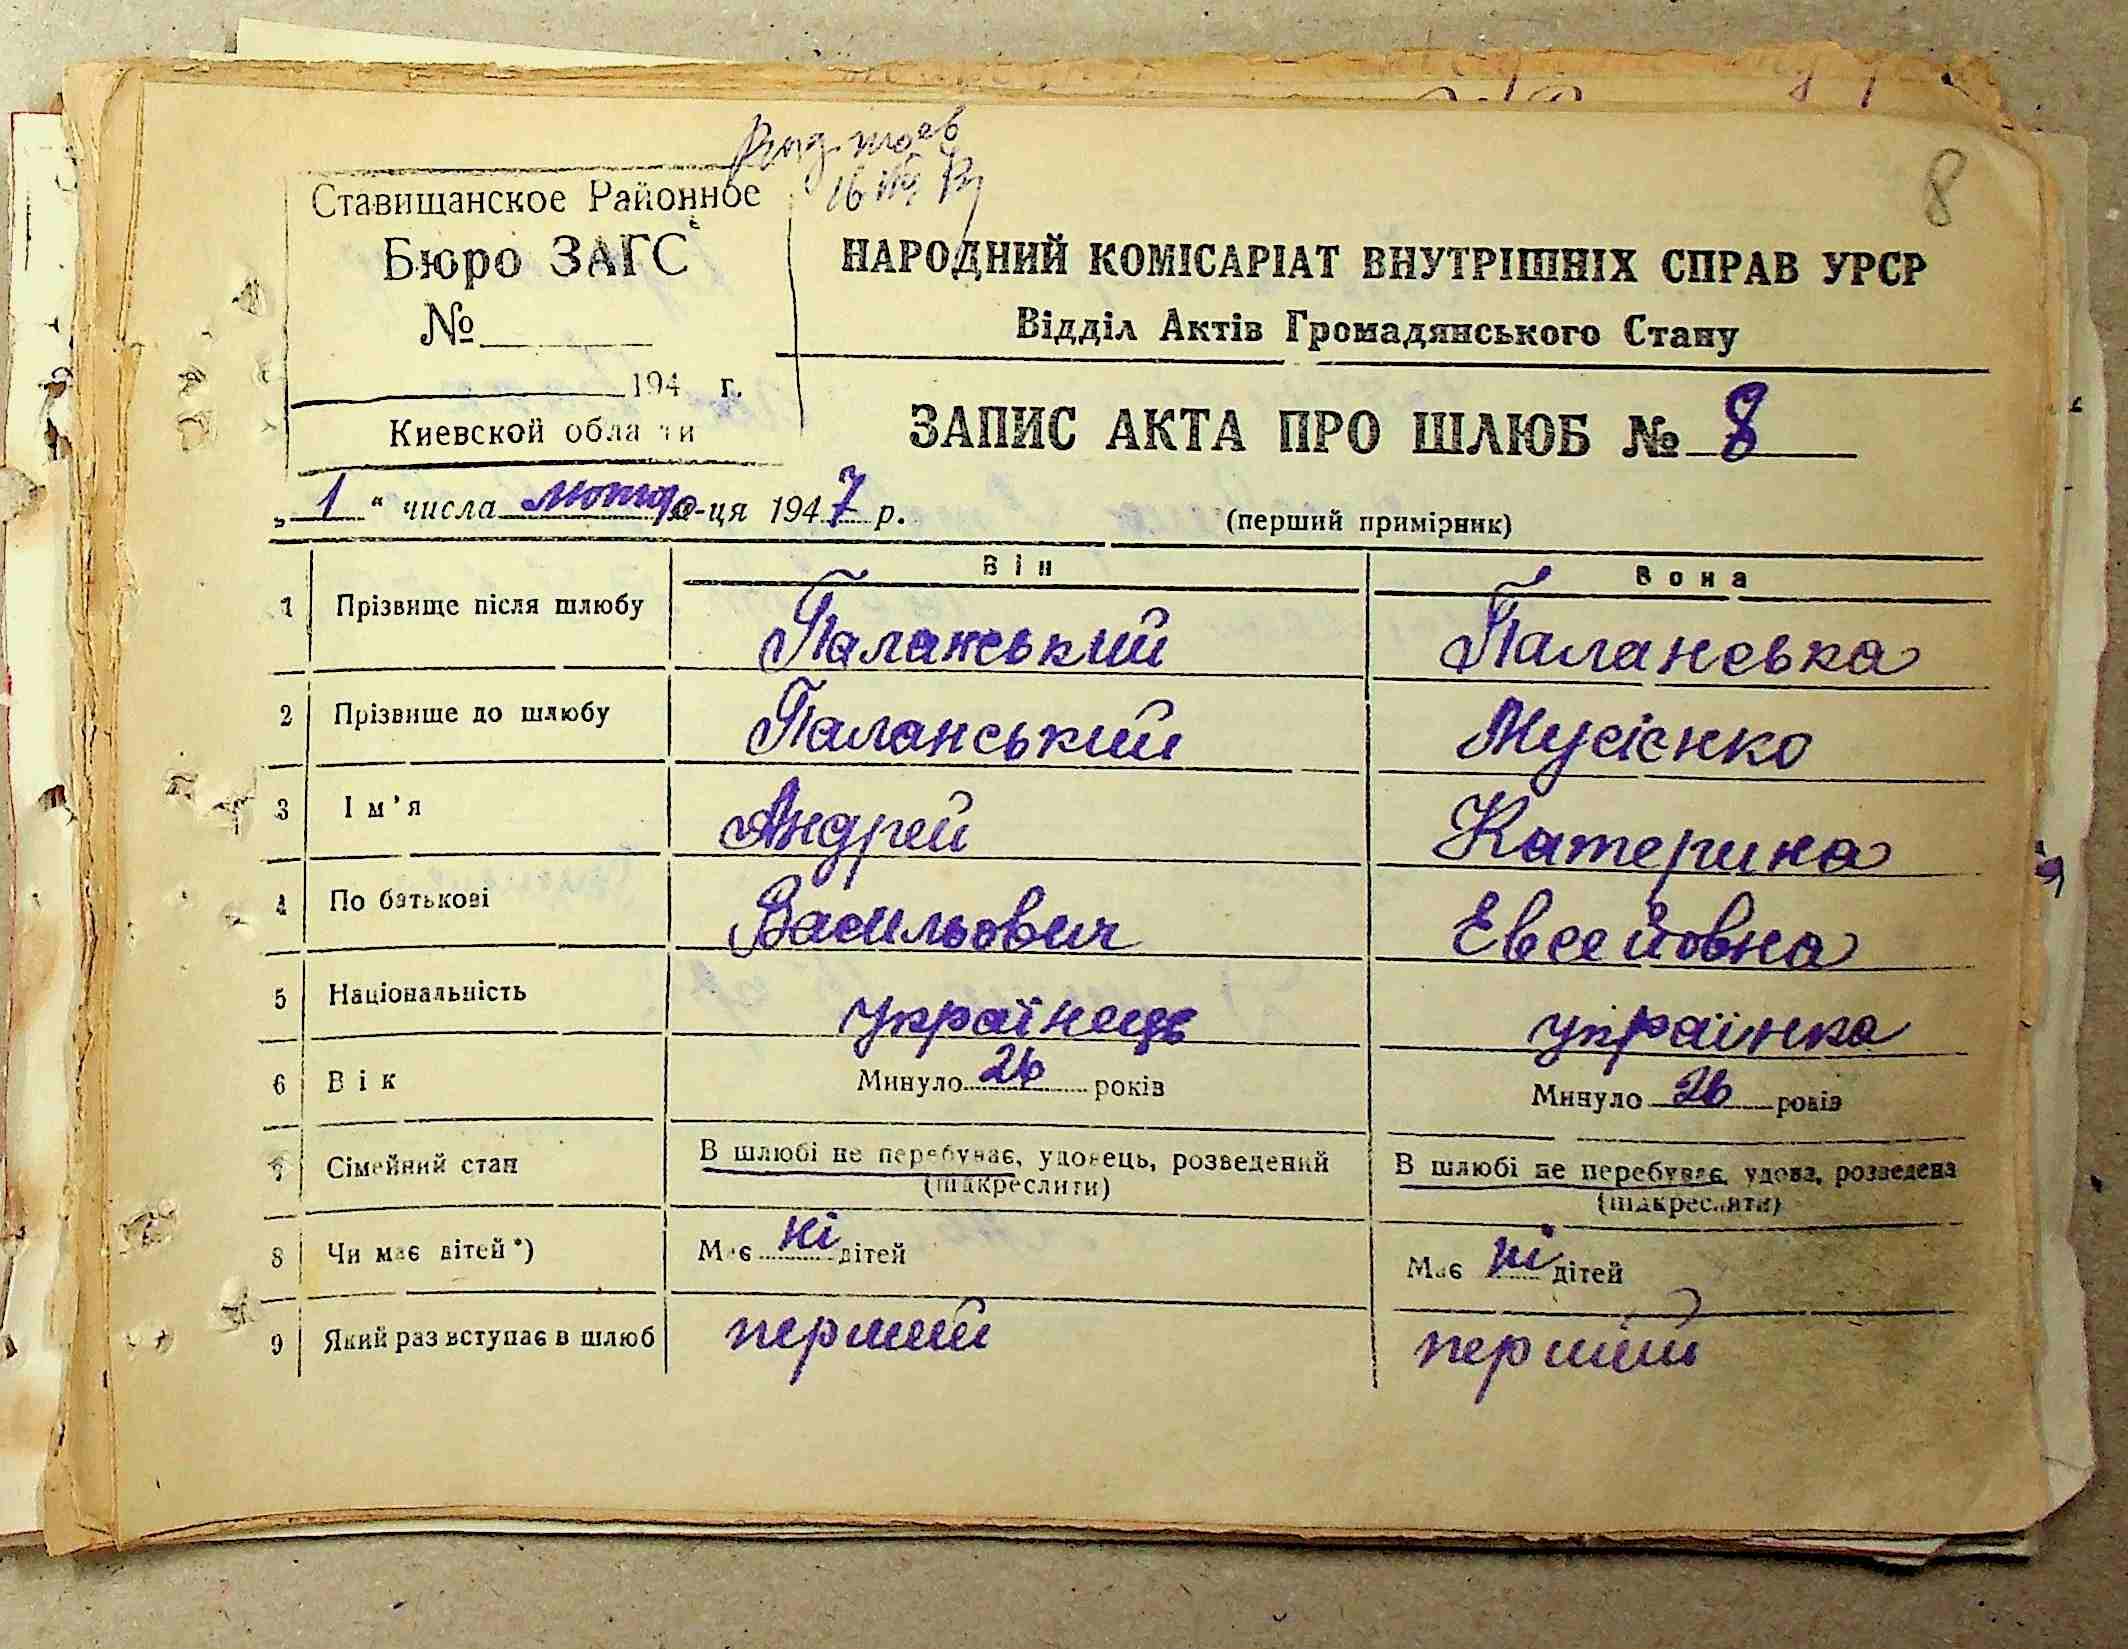 8
Ставищанское Районное
Бюро ЗАГС
№
194 г.
Киевской области
НАРОДНИЙ КОМІСАРІАТ ВНУТРІШНІХ СПРАВ УРСР
Відділ Актів Громадянського Стану
ЗАПИС АКТА ПРО ШЛЮБ № 8
„1“ числа лютого м-ця 1947 р.
(перший примірник)
Він Вона
1 Прізвище після шлюбу Паланський Паланська
2 Прізвище до шлюбу Паланський Мусієнко
3 Ім'я Андрей Катерина
4 По батькові Васильович Евсейовна
5 Національність українець українка
6 Вік Минуло 26 років Минуло 26 років
7 Сімейний стан В шлюбі не перебуває, удовець, розведений В шлюбі не перебуває, удова, розведена
(підкреслити) (підкреслити)
8 Чи має дітей*) Має ні дітей Має ні дітей
9 Який раз вступає в шлюб перший перший